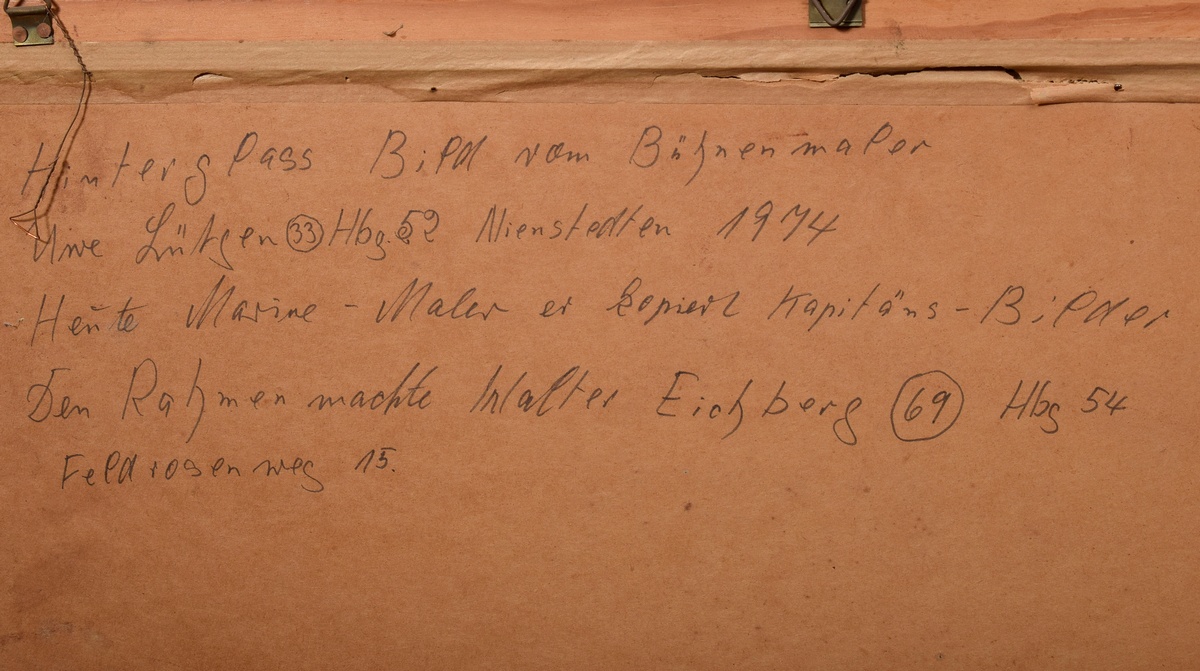 Hinterglass Bild vom Bühnenmaler
Uwe Lütgen 33 Hbg. 52 Nienstedten 1974
Heute Marine - Maler er kopiert Kapitäns - Bilder
Den Rahmen machte Walter Eichberg 69 Hbg 54
Feldrosenweg 15.